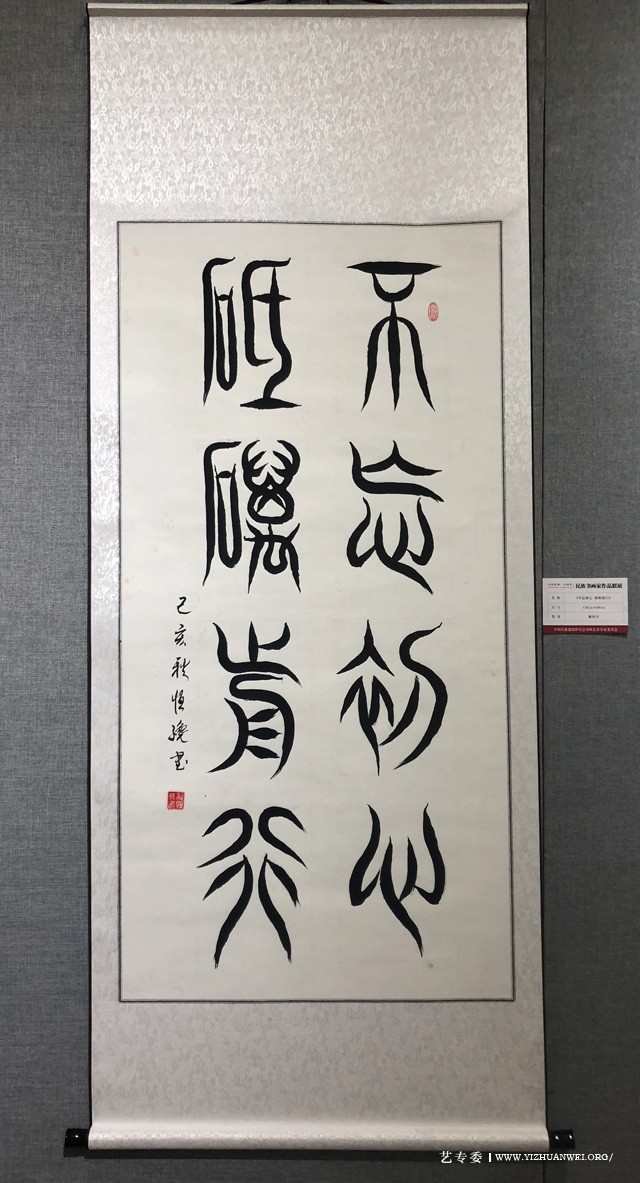 不忘初心
砥礪前行
己亥秋恒曉書
民族书画家作品联展
艺专委 | WWW.YIZHUANWEI.ORG/